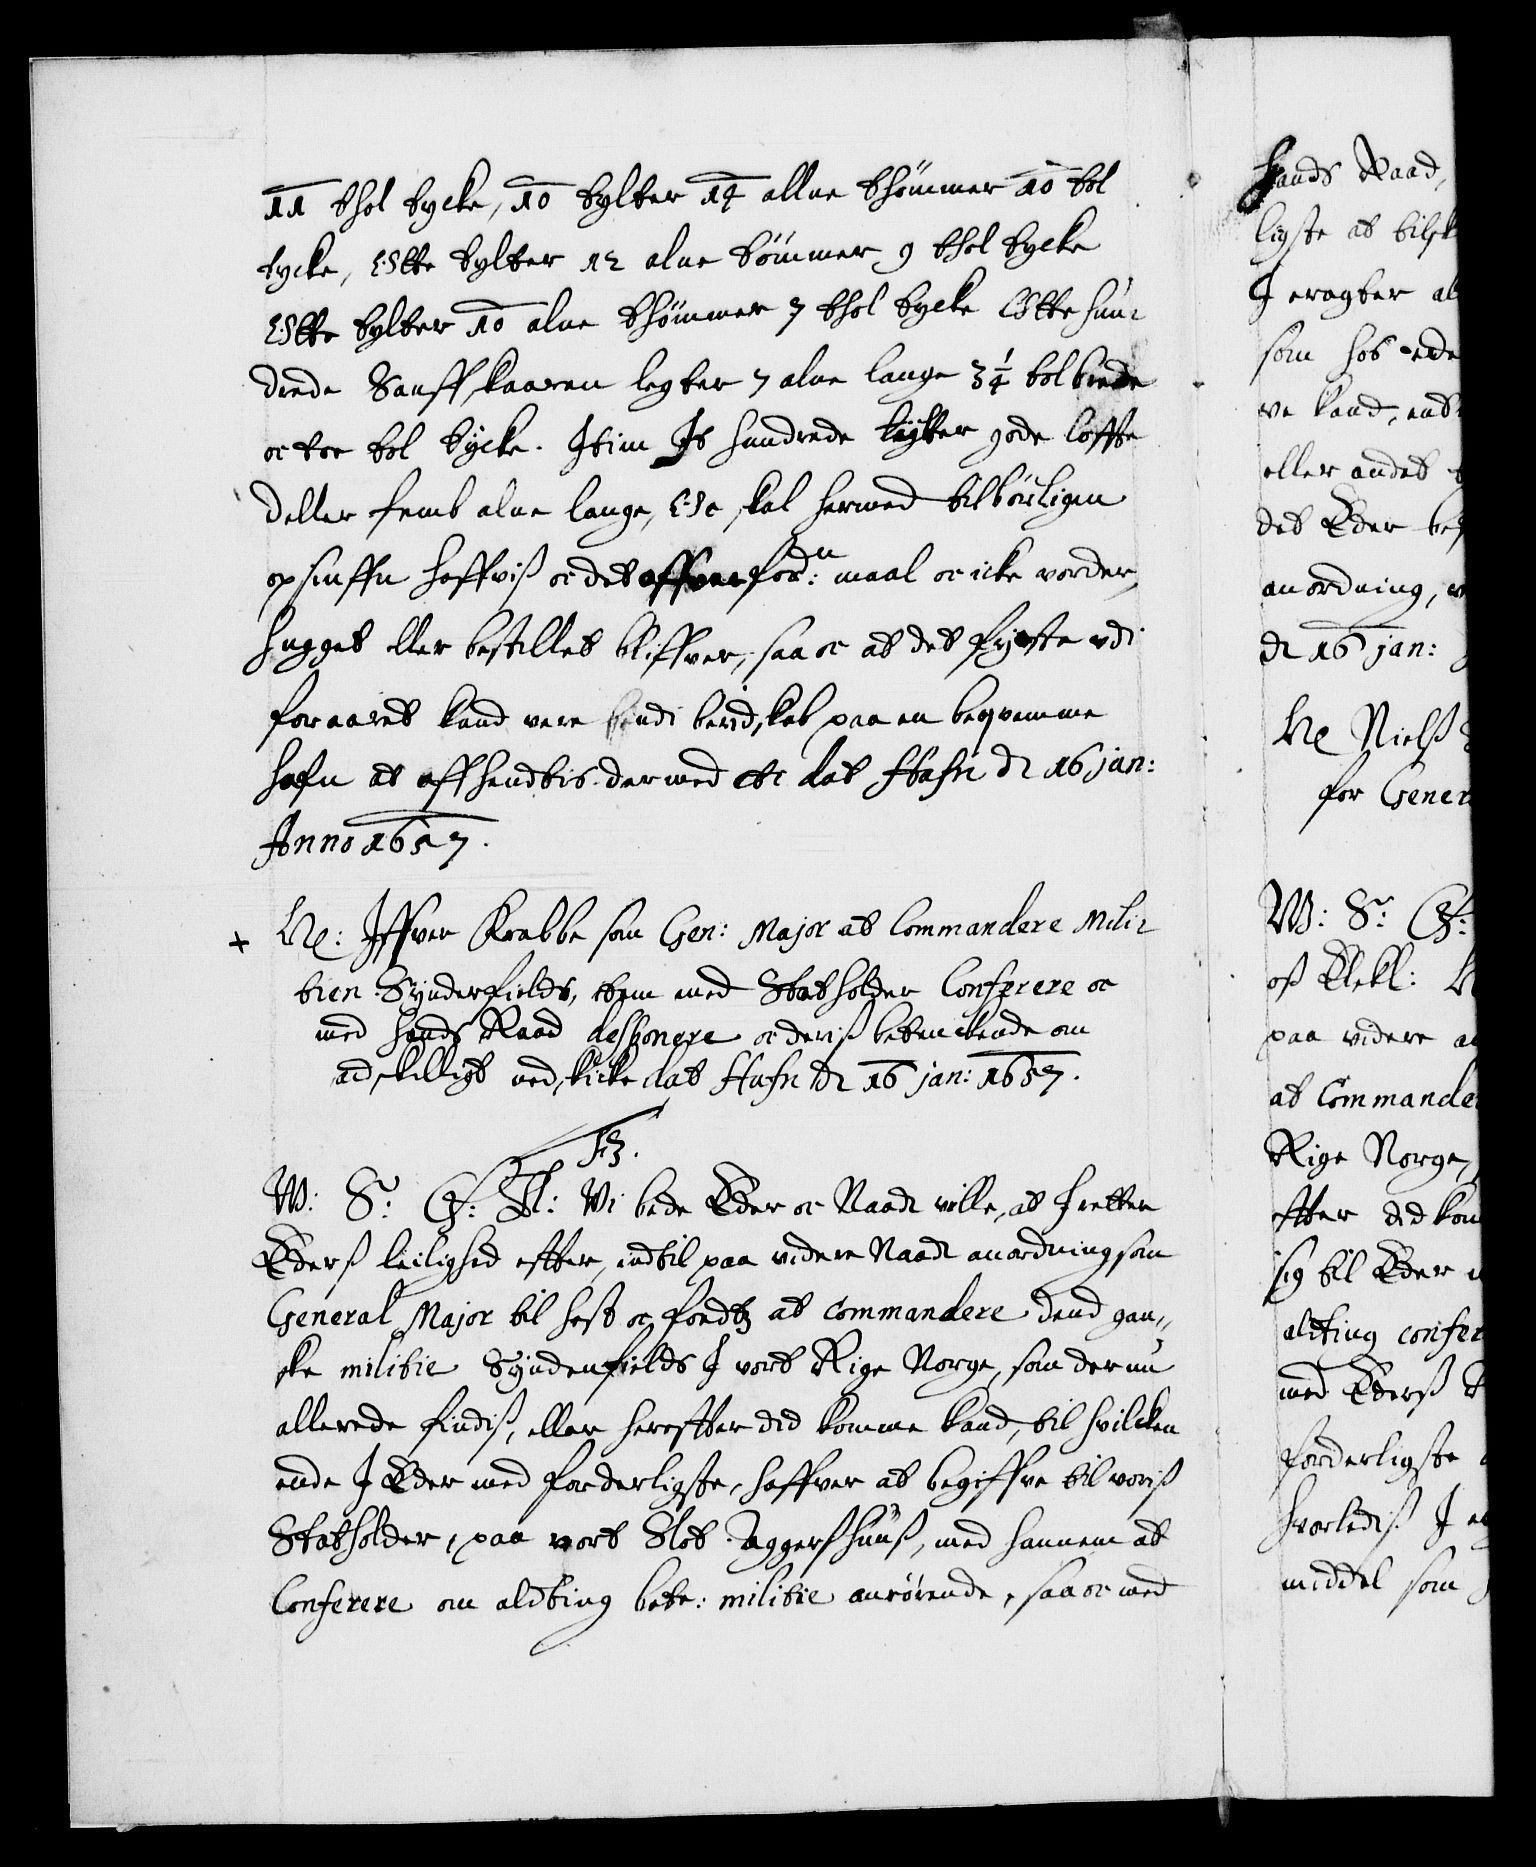 11 thol tycke, 10 tylter 14 allne thömmer 10 tol
tycke, Otte tylter 12 alne tömmer 9 thol tycke
Otte tylter 10 alne thömmer 7 thol tycke Otte hun-
drede Sauffskaaren legter 7 alne lange 3 1/4 tol brede
oc toe tol tycke. Item Et hundrede tylter gode loffte
deller femb alne lange, I skal hermed tilbörligen
opsinffn haffviss oc det offver for:dn maal oc icke vorder
hugget eller bestillet bliffver, saa oc at det fyrste udi
foraaret kand vere tendi beridskab paa en beqvemme
hafn at affhendtis dermed etc dat Hafn d 16 jan:
Anno 1657.
+ Ne: Iffver Krabbe som Gen: Major at Commandere Mili-
tien Synderfields, item med Statholder Conferere oc
med hands Raad desponere oc deriss betenckende om
adskilligt nedskicke dat Hafn d 16 jan: 1657.
F3.
W: S: G: T: Vi bede Eder oc Naadl ville, at I retter
Eders leilighed effter, indtil paa videre Naadl anordning som
General Major til hest oc foedtz at commandere dend gan-
ske militie Syndenfields I vort Rige Norge, som der nu
allerede findiss, eller hereffter did komme kand, til hvilcken
ende I Eder med forderligste, haffver at begiffve til voriss
Statholder, paa vort Slot Aggersshuuss, med hannem at
Conferere om aldting bete: militie anrörende, saa oc med
hands Raad,
ligste at tilsk
I eragter al
som hos ede
ve kand, end
eller andet
det Eder be
anordning,
d 16 jan:
Ne Nielss
for Gener
W: S: G:
oss Elskl:
paa videre a
at Commande
Rige Norge,
effter did kom
sig til Eder
aldting confer
med Eders R
forderligste
hvorlediss I
middel som